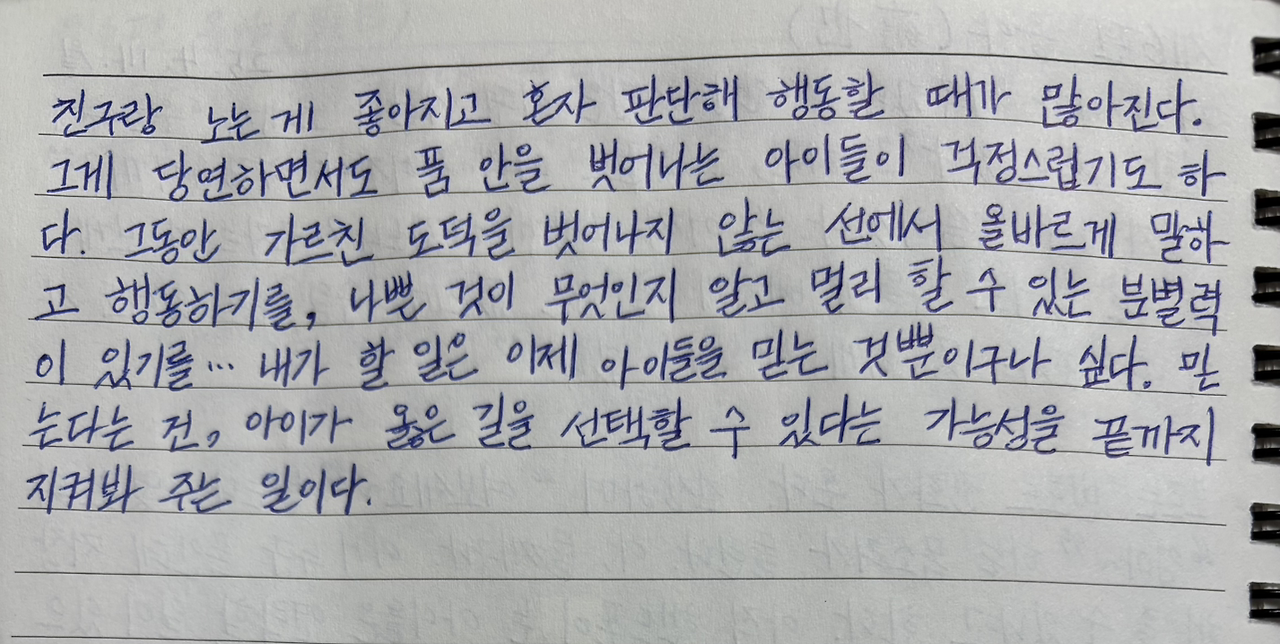 친구랑 노는 게 좋아지고 혼자 판단해 행동할 때가 많아진다.
그게 당연하면서도 품 안을 벗어나는 아이들이 걱정스럽기도 하
다. 그동안 가르친 도덕을 벗어나지 않는 선에서 올바르게 말하
고 행동하기를, 나쁜 것이 무엇인지 알고 멀리 할 수 있는 분별력
이 있기를… 내가 할 일은 이제 아이들을 믿는 것뿐이구나 싶다. 믿
는다는 건, 아이가 옳은 길을 선택할 수 있다는 가능성을 끝까지
지켜봐 주는 일이다.